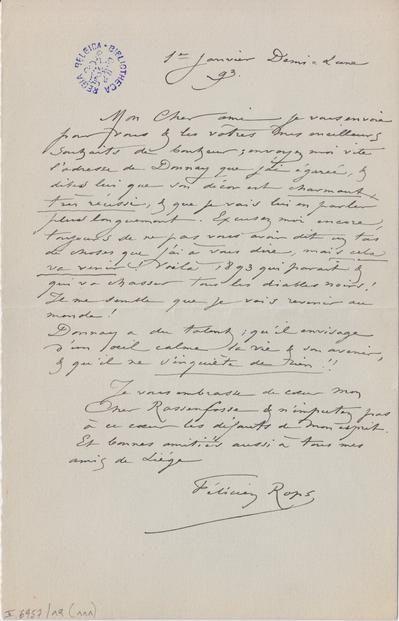 BIBLIOTHECA REGIA BELGICA
1er Janvier Demi-Lune
93.
Mon Cher ami je vous envoie
pour vous & les vôtres mes meilleurs
souhaits de bonheur ; envoyez moi vite
l'adresse de Donnay que j'ai égarée, &
dites lui que son décor est charmant
très réussi, & que je vais lui en parler
plus longuement. Excusez moi encore,
toujours de ne pas vous avoir dit un tas
de choses que j'ai à vous dire, mais cela
va venir ! Voilà 1893 qui parait &
qui va chasser tous les diables noirs !
Il me semble que je vais revenir au
monde !
Donnay a du talent ; qu'il envisage
d'un œil calme la vie & son avenir,
& qu'il ne s'inquiète de rien !!
Je vous embrasse de cœur mon
Cher Rassenfosse & n'imputez pas
à ce cœur les défauts de mon esprit.
Et bonnes amitiés aussi à tous mes
amis de Liége
Félicien Rops
II 6957/19 (111)